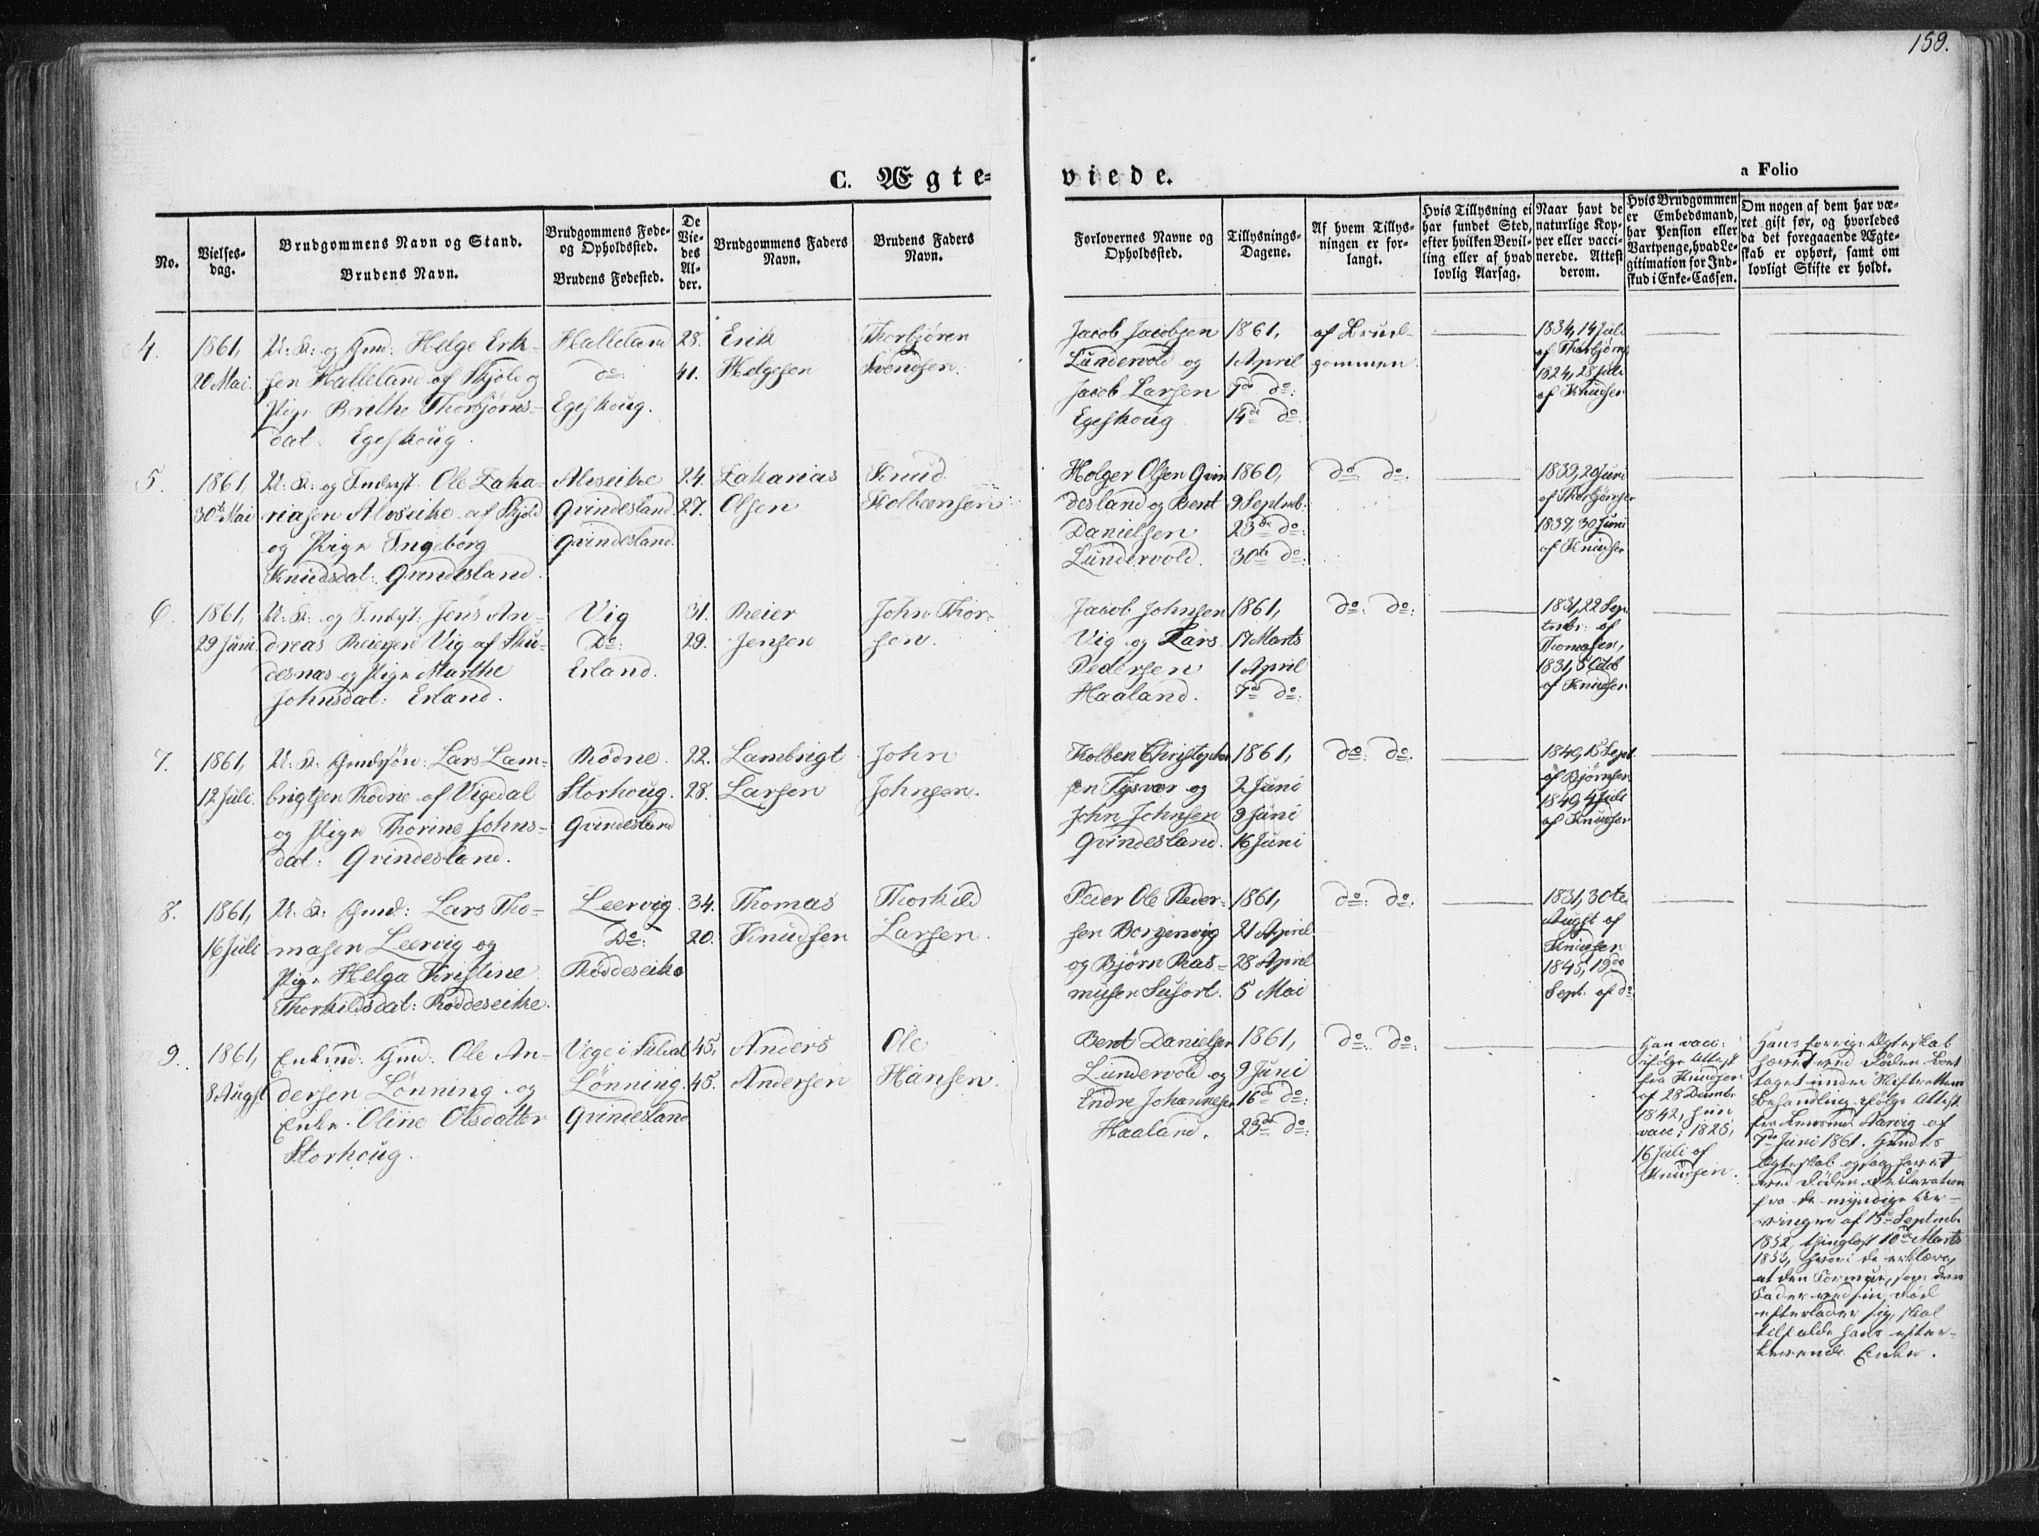 159.
C. Ægte-
viede.
a Folio
No.
Vielses-
dag.
Brudgommens Navn og Stand.
Brudens Navn.
Brudgommens Føde-
og Opholdssted.
Brudens Fødested.
De
Vie-
des
Al-
der.
Brudgommens Faders
Navn.
Brudens Faders
Navn.
Forlovernes Navne og
Opholdssted.
Tillysnings-
Dagene.
Af hvem Tillys-
ningen er for-
langt.
Hvis Tillysning ei
har fundet Sted,
efter hvilken Bevil-
ling eller af hvad
lovlig Aarsag.
Naar havt de
naturlige Kop-
per eller vacci-
nerede. Attest
derom.
Hvis Brudgommen
er Embedsmand,
har Pension eller
Vartpenge, hvad Le-
gitimation for Ind-
skud i Enke-Cassen.
Om nogen af dem har væ-
ret gift før, og hvorledes
da det foregaaende Ægte-
skab er ophørt, samt om
lovligt Skifte er holdt.
4.
1861,
20 Mai.
U. K. og Gmd: Helge Erik-
sen Halleland af Skjold og
Pige Brethe Thorbjørns-
dat. Egeskoug.
Halleland
do:
Egeskoug.
28.
41.
Erik
Helgesen
Thorbjøren
Svendsen.
Jacob Jacobsen
Lundervold og
Jacob Larsen
Egeskoug
1861,
1 April
7de do:
14de do:
af Brud-
gommen.
1834, 14 Juli
af Thorbjørns
1824, 28 Juli
af Knudsen
5.
1861,
30te Mai
U. K. og Inderst. Ole Zaka-
riasen Alvseike af Skjold
og Pige Ingeborg
Knudsdat: Grindesland.
Alvseike
Grindesland
Grindesland.
24.
27.
Zakarias
Olsen
Knud
Kolbeensen
Holger Olsen Grin
desland og Bent
Danielsen
Lundervold.
1860,
9 Septemb:
23de do:
30te do:
do: do:
af Thorbjørnsen
1837, 30 Juni
af Knudsen
6.
1861,
29 Juni
U. K. og Inderst. Jens An-
dreas Reiersen Vig af Sku-
desnæs og Pige Marthe
Johnsdat: Erland.
Vig
Do:
Erland.
31.
29.
Reier
Jensen
John Thor-
sen.
Jacob Johnsen
Vig og Lars
Pedersen
Haaland.
1861,
17 Marts
1 April
7de do:
do: do:
1831, 22 Sep
tembr: af
Thomasen,
1831, 5 Octob
af Knudsen
7.
1861,
12 Juli.
U. K. Gmdssøn: Lars Lam-
brigtsen Rødne af Vigedal
og Pige Thorine Johns-
dat: Grindesland.
Rødne.
Storhoug.
Grindesland
22.
28.
Lambrigt
Larsen
John
Johnsen.
Kolben Christophers
sen Tysvær og
John Johnsen
Grindesland.
1861,
2 Juni
9 Juni
16 Juni
do: do:
1840, 15 Sept.
af Bjørnsen
1840, 4 Juli
af Knudsen
8.
1861,
16 Juli
U. K: Gmd: Lars Tho-
masen Leervig og
Pige Helga Kristine
Thorkildsdat: Røddeseike.
Leervig.
Do:
Røddeseike
34.
20.
Thomas
Knudsen
Thorkild
Larsen.
Peder Ole Peder-
sen Borgenvig
og Bjørn Ras-
musen Susort.
1861,
21 April
28 April
5 Mai
do: do:
1831, 30te
Augst af
Knudsen
1845, 19de
Sept. af do
9.
1861,
8 Augst
Enkmd: Gmd. Ole An-
dersen Lønning og
Enke Oline Olsdatter
Storhoug.
Vege i Suledal
Lønning.
Grindesland
45,
45.
Anders
Andersen
Ole
Hansen.
Bent Danielsen
Lundervold og
Endre Johannesen
Haaland.
1861,
9 Juni
16de do:
23de do:
do: do:
Han vacc:
ifølge Attest
fra Knudsen
af 28 Decembr
1842, hun
vacc: 1825,
16 Juli af
Knudsen.
Hans forrige Ægteskab
hævet ved Døden Boet
taget under Skifterettens
Behandling ifølge Attest
fra Lensmd. Aarvig af
7de Juni 1861. Hendes
Ægteskab ogsaa hævet
ved Døden. Declaration
fra de myndige Ar-
vinger af 15de Septembr
1852, thinglæst 10de Marts
1853, hvori de erklære,
at den Formue, som deres
Fader ved sin Død
efterlader sig, skal
tilfalde hans efter-
levende Enke.